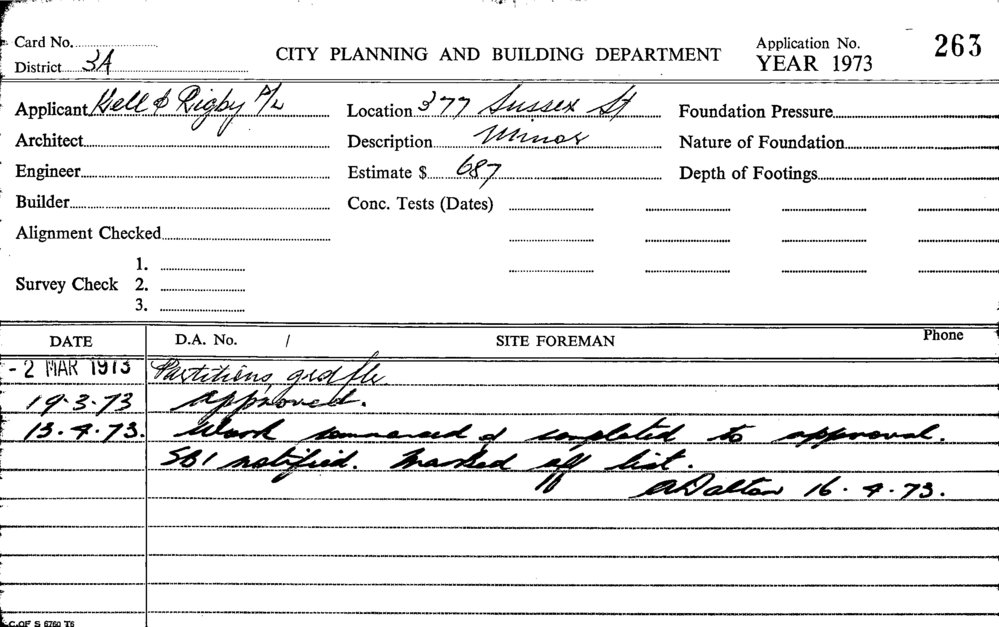 Card No.
District 3A
CITY PLANNING AND BUILDING DEPARTMENT
Application No. 263
YEAR 1973
Applicant Kell & Rigby P/L
Location 377 Sussex St
Foundation Pressure
Architect
Description Minor
Nature of Foundation
Engineer
Estimate $ 687
Depth of Footings
Builder
Conc. Tests (Dates)
Alignment Checked
Survey Check 1.
2.
3.
DATE D.A. No. / SITE FOREMAN Phone
-2 MAR 1973 Partitions, grd flr
19.3.73 approved.
13.4.73. Work commenced & completed to approval.
SBI notified. Marked off list.
ADalton 16.4.73.
C. OF S 6760 T6